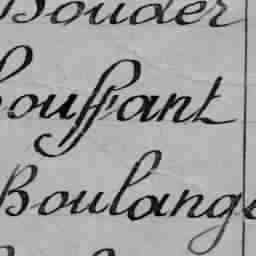 Bouder
Bouffant
Boulang